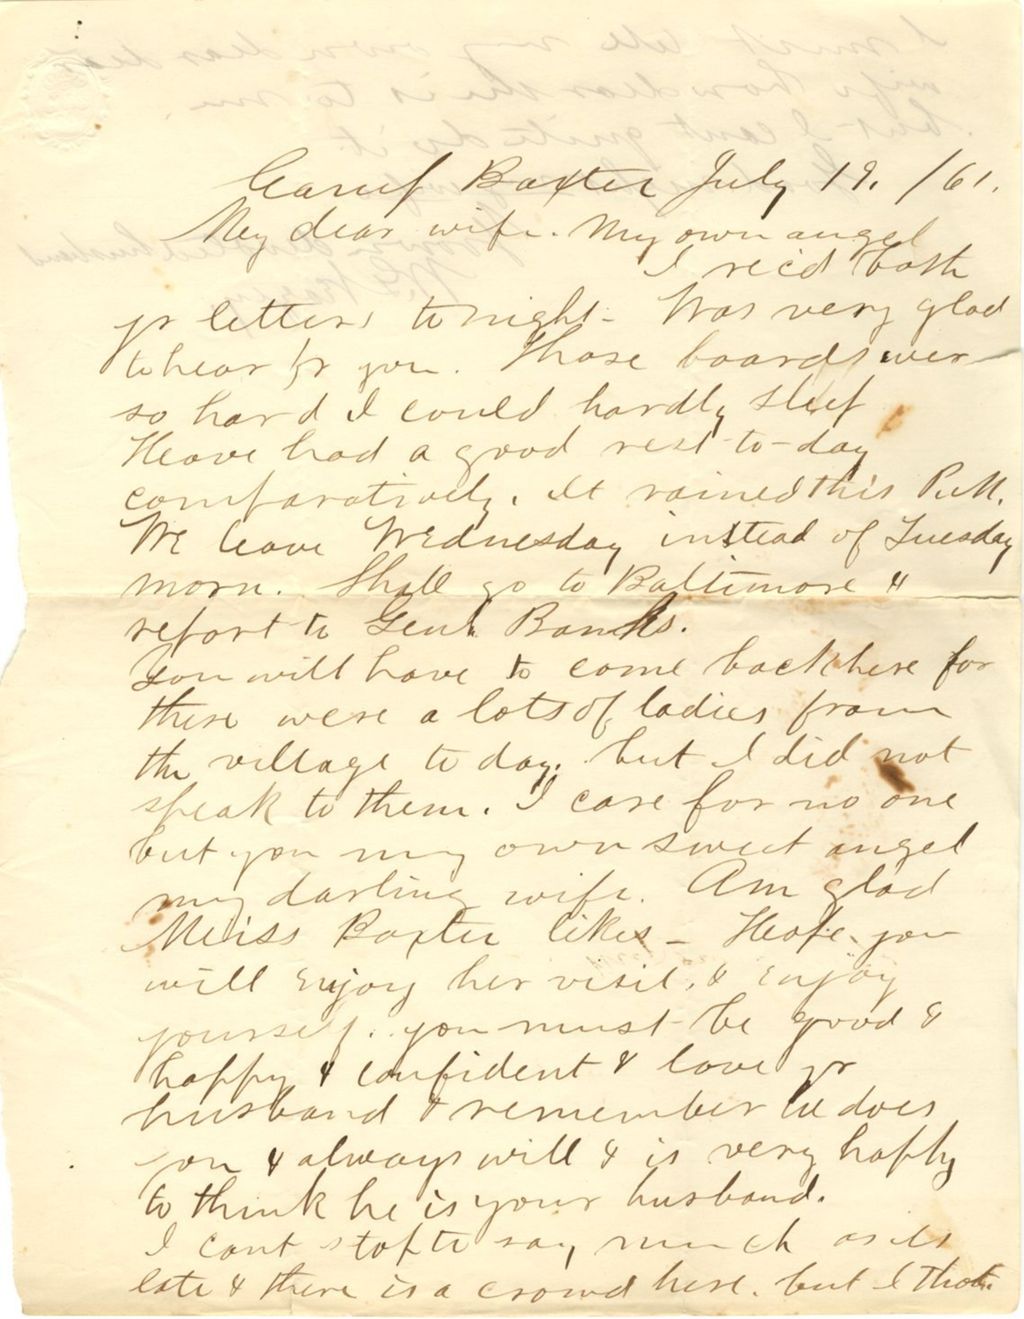 Camp Baxter July 19. /61.
My dear wife. My own angel
I rec'd both
yr letters tonight - Was very glad
to hear fr you. Those boards wer
so hard I could hardly sleep
Have had a good rest to-day
comparatively. It rained this P.M.
We leave Wednesday instead of Tuesday
morn. Shall go to Baltimore &
report to Genl. Banks.
You will have to come back here for
there were a lots of ladies from
the village to day. but I did not
speak to them. I care for no one
but you my own sweet angel
my darling wife. Am glad
Miss Baxter likes - Hope you
will enjoy her visit. & enjoy
yourself. you must be good &
happy & confident & love yr
husband & remember he does
you & always will & is very happy
to think he is your husband.
I cant stop to say much as its
late & there is a crowd here. but I thot.